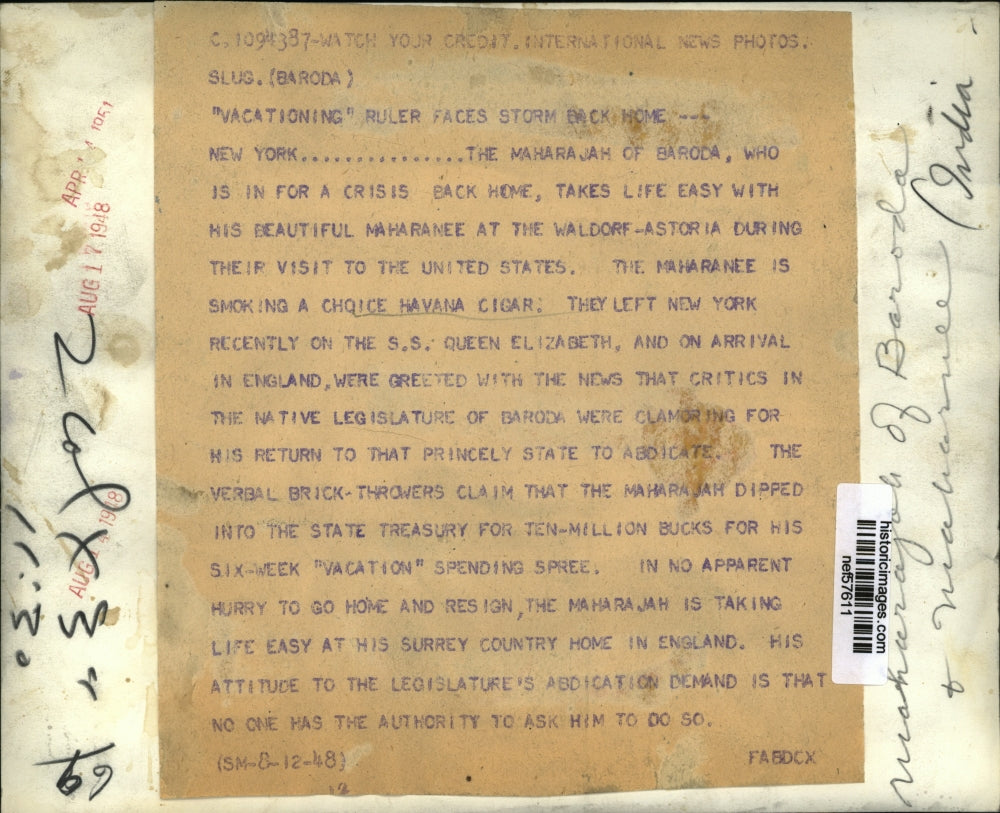 C.1094387-WATCH YOUR CREDIT.INTERNATIONAL NEWS PHOTOS.
SLUG.(BARODA)
"VACATIONING" RULER FACES STORM BACK HOME ---
NEW YORK................THE MAHARAJAH OF BARODA, WHO
IS IN FOR A CRISIS BACK HOME, TAKES LIFE EASY WITH
HIS BEAUTIFUL MAHARANEE AT THE WALDORF-ASTORIA DURING
THEIR VISIT TO THE UNITED STATES. THE MAHARANEE IS
SMOKING A CHOICE HAVANA CIGAR. THEY LEFT NEW YORK
RECENTLY ON THE S.S. QUEEN ELIZABETH, AND ON ARRIVAL
IN ENGLAND, WERE GREETED WITH THE NEWS THAT CRITICS IN
THE NATIVE LEGISLATURE OF BARODA WERE CLAMORING FOR
HIS RETURN TO THAT PRINCELY STATE TO ABDICATE. THE
VERBAL BRICK-THROWERS CLAIM THAT THE MAHARAJAH DIPPED
INTO THE STATE TREASURY FOR TEN-MILLION BUCKS FOR HIS
SIX-WEEK "VACATION" SPENDING SPREE. IN NO APPARENT
HURRY TO GO HOME AND RESIGN, THE MAHARAJAH IS TAKING
LIFE EASY AT HIS SURREY COUNTRY HOME IN ENGLAND. HIS
ATTITUDE TO THE LEGISLATURE'S ABDICATION DEMAND IS THAT
NO ONE HAS THE AUTHORITY TO ASK HIM TO DO SO.
(SM-8-12-48) FABDCX
APR 14 1951
AUG 17 1948
AUG 1948
historicimages.com
nef57611
Maharajah of Baroda
& Maharanee (India